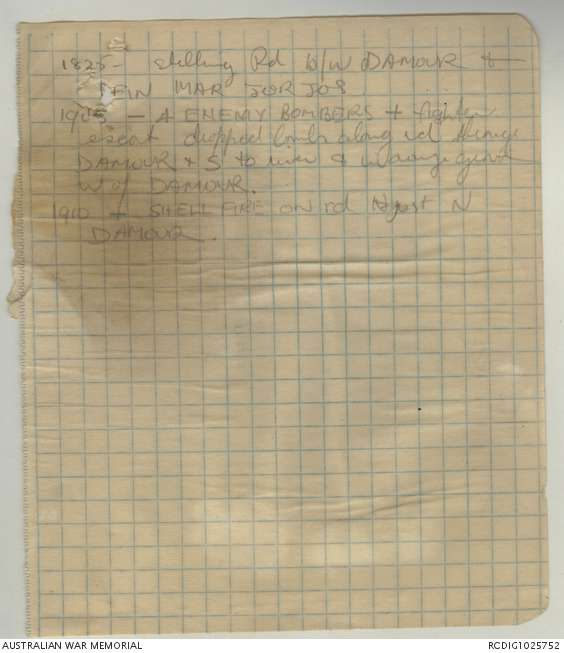 1825 - shelling Rd b/w DAMOUR &
EIN MAR JORJOS
1905 - 4 ENEMY BOMBERS + fighter
escort dropped bombs along rd through
DAMOUR & S to river &
W of DAMOUR.
1910 - SHELL FIRE ON rd just N
DAMOUR.
AUSTRALIAN WAR MEMORIAL
RCDIG1025752